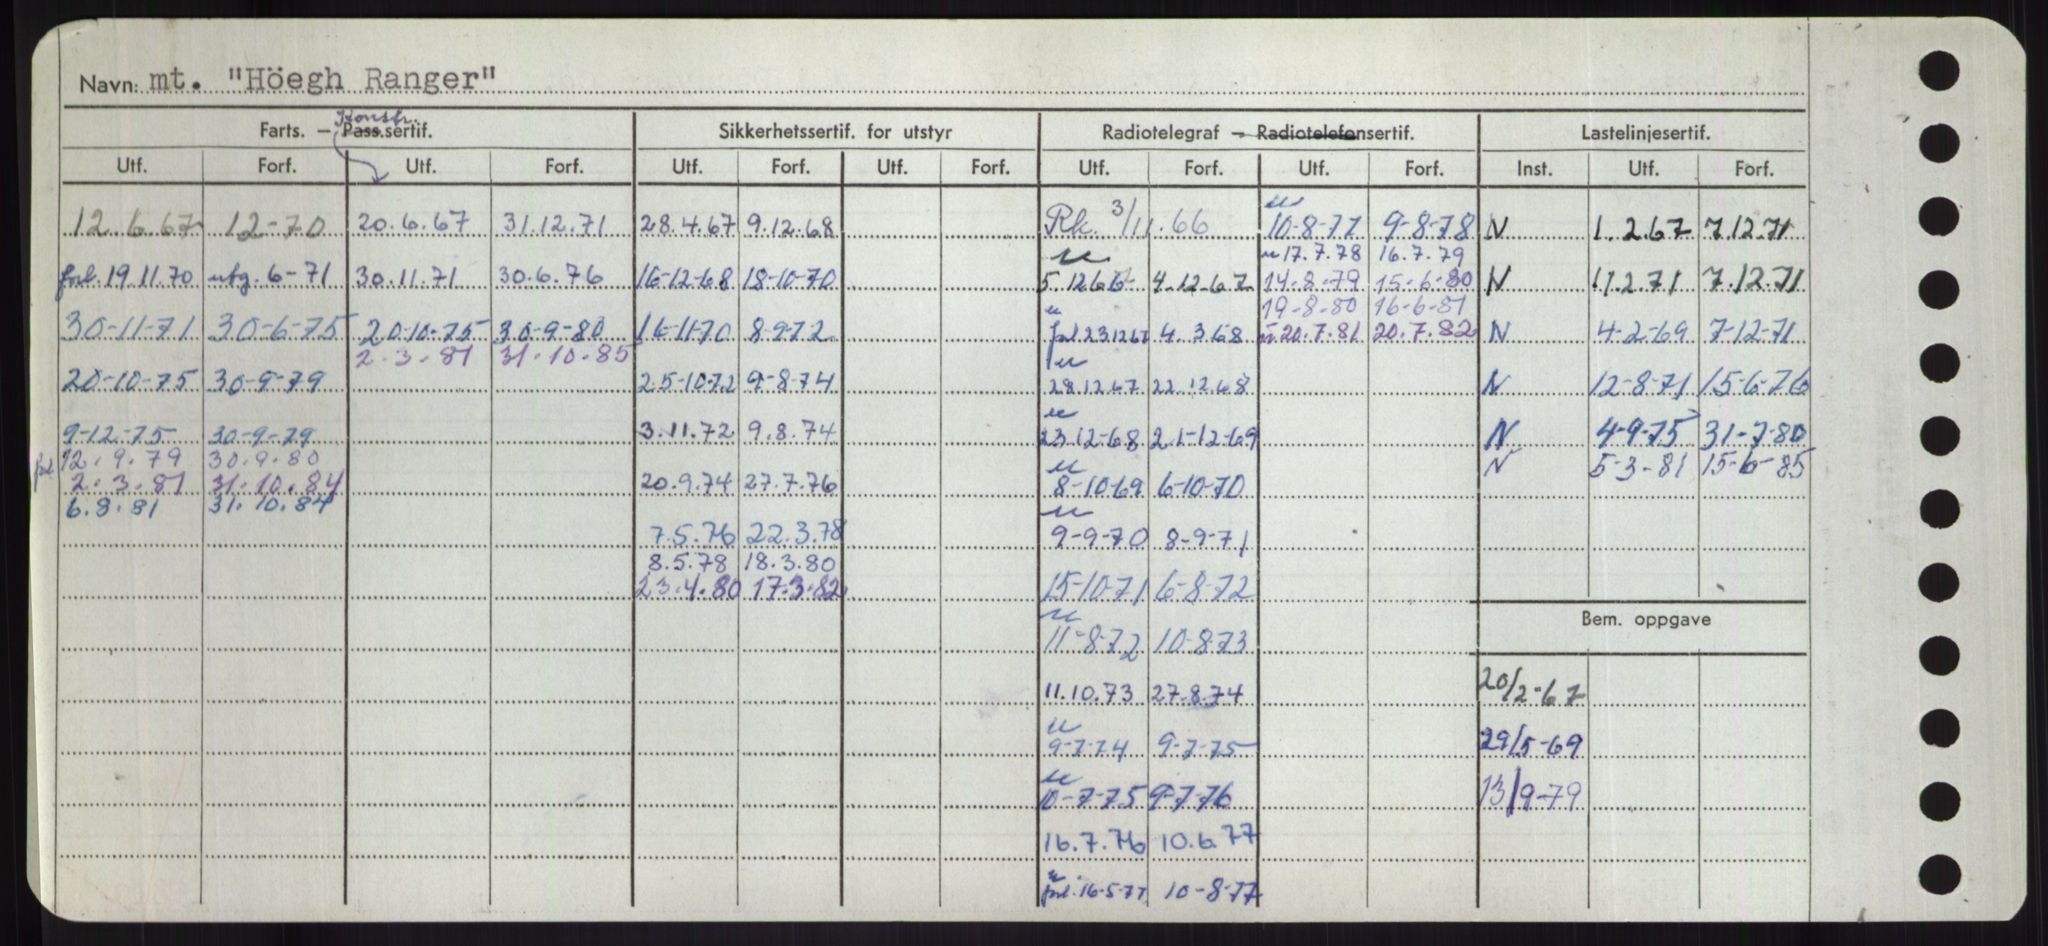 Navn: mt. "Höegh Ranger"
Konstr.
Farts. – Pass.sertif. Sikkerhetssertif. for utstyr Radiotelegraf – Radiotelefonsertif. Lastelinjesertif.
Utf. Forf. Utf. Forf. Utf. Forf. Utf. Forf. Utf. Forf. Utf. Forf. Inst. Utf. Forf.
12.6.67 12-70 20.6.67 31.12.71 28.4.67 9.12.68 Rk. 3/11.66 10-8-77 9-8-78 N 1.2.67 7.12.71
17.7.78 16.7.79
forl. 19.11.70 utg. 6-71 30.11.71 30.6.76 16-12-68 18-10-70 5.12.66 4.12.67 14-8-79 15-6-80 N 11.2.71 7.12.71
19-8-80 16-6-81
30-11-71 30-6-75 20-10-75 30-9-80 16-11-70 8-9-72 forl 23.12.67 4.3.68 20.7.81 20.7.82 N 4-2-69 7-12-71
2.3.81 31.10.85
20-10-75 30-9-79 25-10-72 9-8-74 28.12.67 22.12.68 N 12-8-71 15-6-76
9-12-75 30-9-79 3.11.72 9.8.74 23.12-68 21-12-69 N 4-9-75 31-7-80
forl 12.9.79 30.9.80 N 5-3-81 15-6-85
2.3.81 31.10.84 20.9.74 27.7.76 8-10-69 6-10-70
6.8.81 31.10.84
7.5.76 22.3.78 9-9-70 8-9-71
8.5.78 18.3.80
23.4.80 17.3.82 15-10-71 6-8-72
Bem. oppgave
11-8-72 10-8-73
11.10.73 27.8.74 20/2-67
9-7-74 9-7-75 29/5-69
10-7-75 9-7-76 13/9-79
16.7.76 10.6.77
forl. 16-5-77 10-8-77